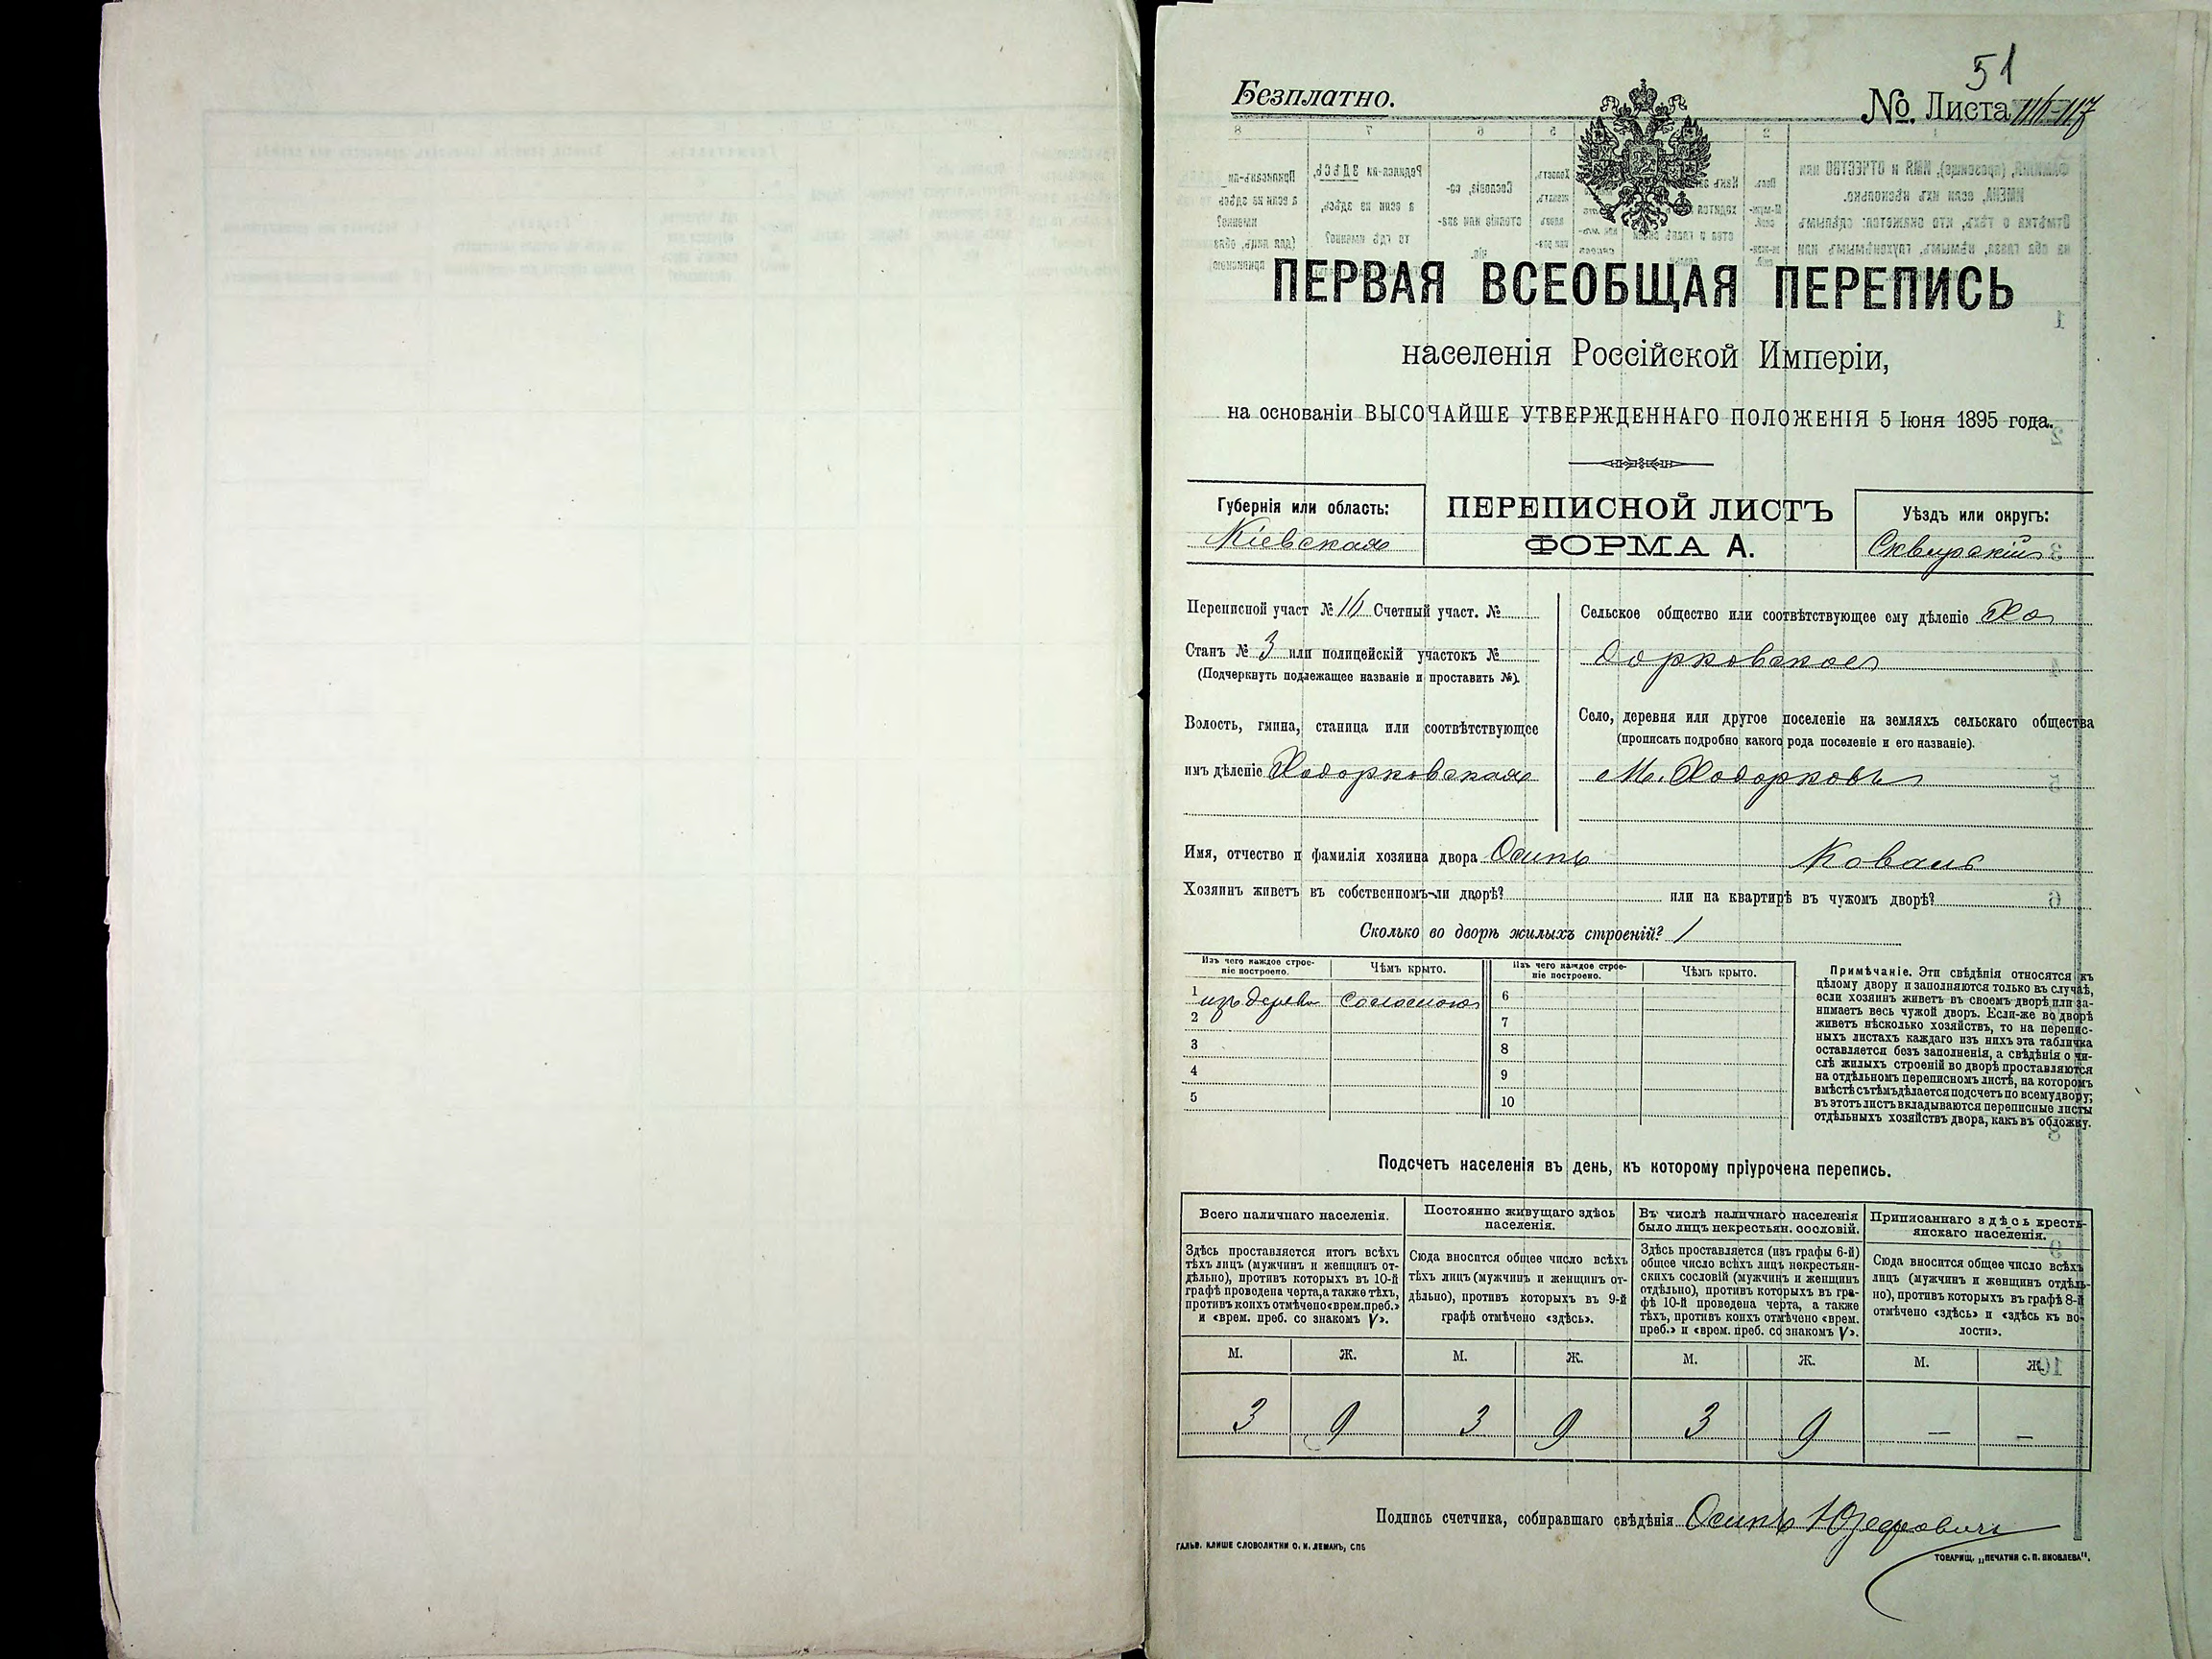 51
Безплатно.
№ Листа 116-117
ПЕРВАЯ ВСЕОБЩАЯ ПЕРЕПИСЬ
населенія Россійской Имперіи,
на основаніи ВЫСОЧАЙШЕ УТВЕРЖДЕННАГО ПОЛОЖЕНІЯ 5 Іюня 1895 года.
Губернія или область:
Кіевская
ПЕРЕПИСНОЙ ЛИСТЪ
ФОРМА А.
Уѣздъ или округъ:
Сквирскій
Переписной участ № 16 Счетный участ. №
Станъ № 3 или полицейскій участокъ №
(Подчеркнуть подлежащее названіе и проставить №).
Волость, гмина, станица или соотвѣтствующее
имъ дѣленіе Ходорковская
Сельское общество или соотвѣтствующее ему дѣленіе Хо
дорковское
Село, деревня или другое поселеніе на земляхъ сельскаго общества
(прописать подробно какого рода поселеніе и его названіе).
М. Ходорковъ
Имя, отчество и фамилія хозяина двора Осипъ Коваль
Хозяинъ живетъ въ собственномъ-ли дворѣ? или на квартирѣ въ чужомъ дворѣ?
Сколько во дворѣ жилыхъ строеній? 1
Изъ чего каждое строе-
ніе построено.
Чѣмъ крыто.
Изъ чего каждое строе-
ніе построено.
Чѣмъ крыто.
1 изъ дерева соломою 6
2 7
3 8
4 9
5 10
Примѣчаніе. Эти свѣдѣнія относятся къ
цѣлому двору и заполняются только въ случаѣ,
если хозяинъ живетъ въ своемъ дворѣ или за-
нимаетъ весь чужой дворъ. Если-же во дворѣ
живетъ нѣсколько хозяйствъ, то на перепис-
ныхъ листахъ каждаго изъ нихъ эта табличка
оставляется безъ заполненія, а свѣдѣнія о чи-
слѣ жилыхъ строеній во дворѣ проставляются
на отдѣльномъ переписномъ листѣ, на которомъ
вмѣстѣ съ тѣмъ дѣлается подсчетъ по всему двору;
въ этотъ листъ вкладываются переписные листы
отдѣльныхъ хозяйствъ двора, какъ въ обложку.
Подсчетъ населенія въ день, къ которому пріурочена перепись.
Всего наличнаго населенія.
Здѣсь проставляется итогъ всѣхъ
тѣхъ лицъ (мужчинъ и женщинъ от-
дѣльно), противъ которыхъ въ 10-й
графѣ проведена черта, а также тѣхъ,
противъ коихъ отмѣчено «врем. преб.»
и «врем. преб. со знакомъ V».
Постоянно живущаго здѣсь
населенія.
Сюда вносится общее число всѣхъ
тѣхъ лицъ (мужчинъ и женщинъ от-
дѣльно), противъ которыхъ въ 9-й
графѣ отмѣчено «здѣсь».
Въ числѣ наличнаго населенія
было лицъ некрестьян. сословій.
Здѣсь проставляется (изъ графы 6-й)
общее число всѣхъ лицъ некрестьян-
скихъ сословій (мужчинъ и женщинъ
отдѣльно), противъ которыхъ въ гра-
фѣ 10-й проведена черта, а также
тѣхъ, противъ коихъ отмѣчено «врем.
преб.» и «врем. преб. со знакомъ V».
Приписаннаго здѣсь кресть-
янскаго населенія.
Сюда вносится общее число всѣхъ
лицъ (мужчинъ и женщинъ отдѣль-
но), противъ которыхъ въ графѣ 8-й
отмѣчено «здѣсь» и «здѣсь къ во-
лости».
М. Ж. М. Ж. М. Ж. М. Ж.
3 9 3 9 3 9 — —
Подпись счетчика, собиравшаго свѣдѣнія Осипъ Юзефовичъ
ГАЛЬВ. КЛИШЕ СЛОВОЛИТНИ О. И. ЛЕМАНЪ, СПБ
ТОВАРИЩ. „ПЕЧАТНЯ С. П. ЯКОВЛЕВА".